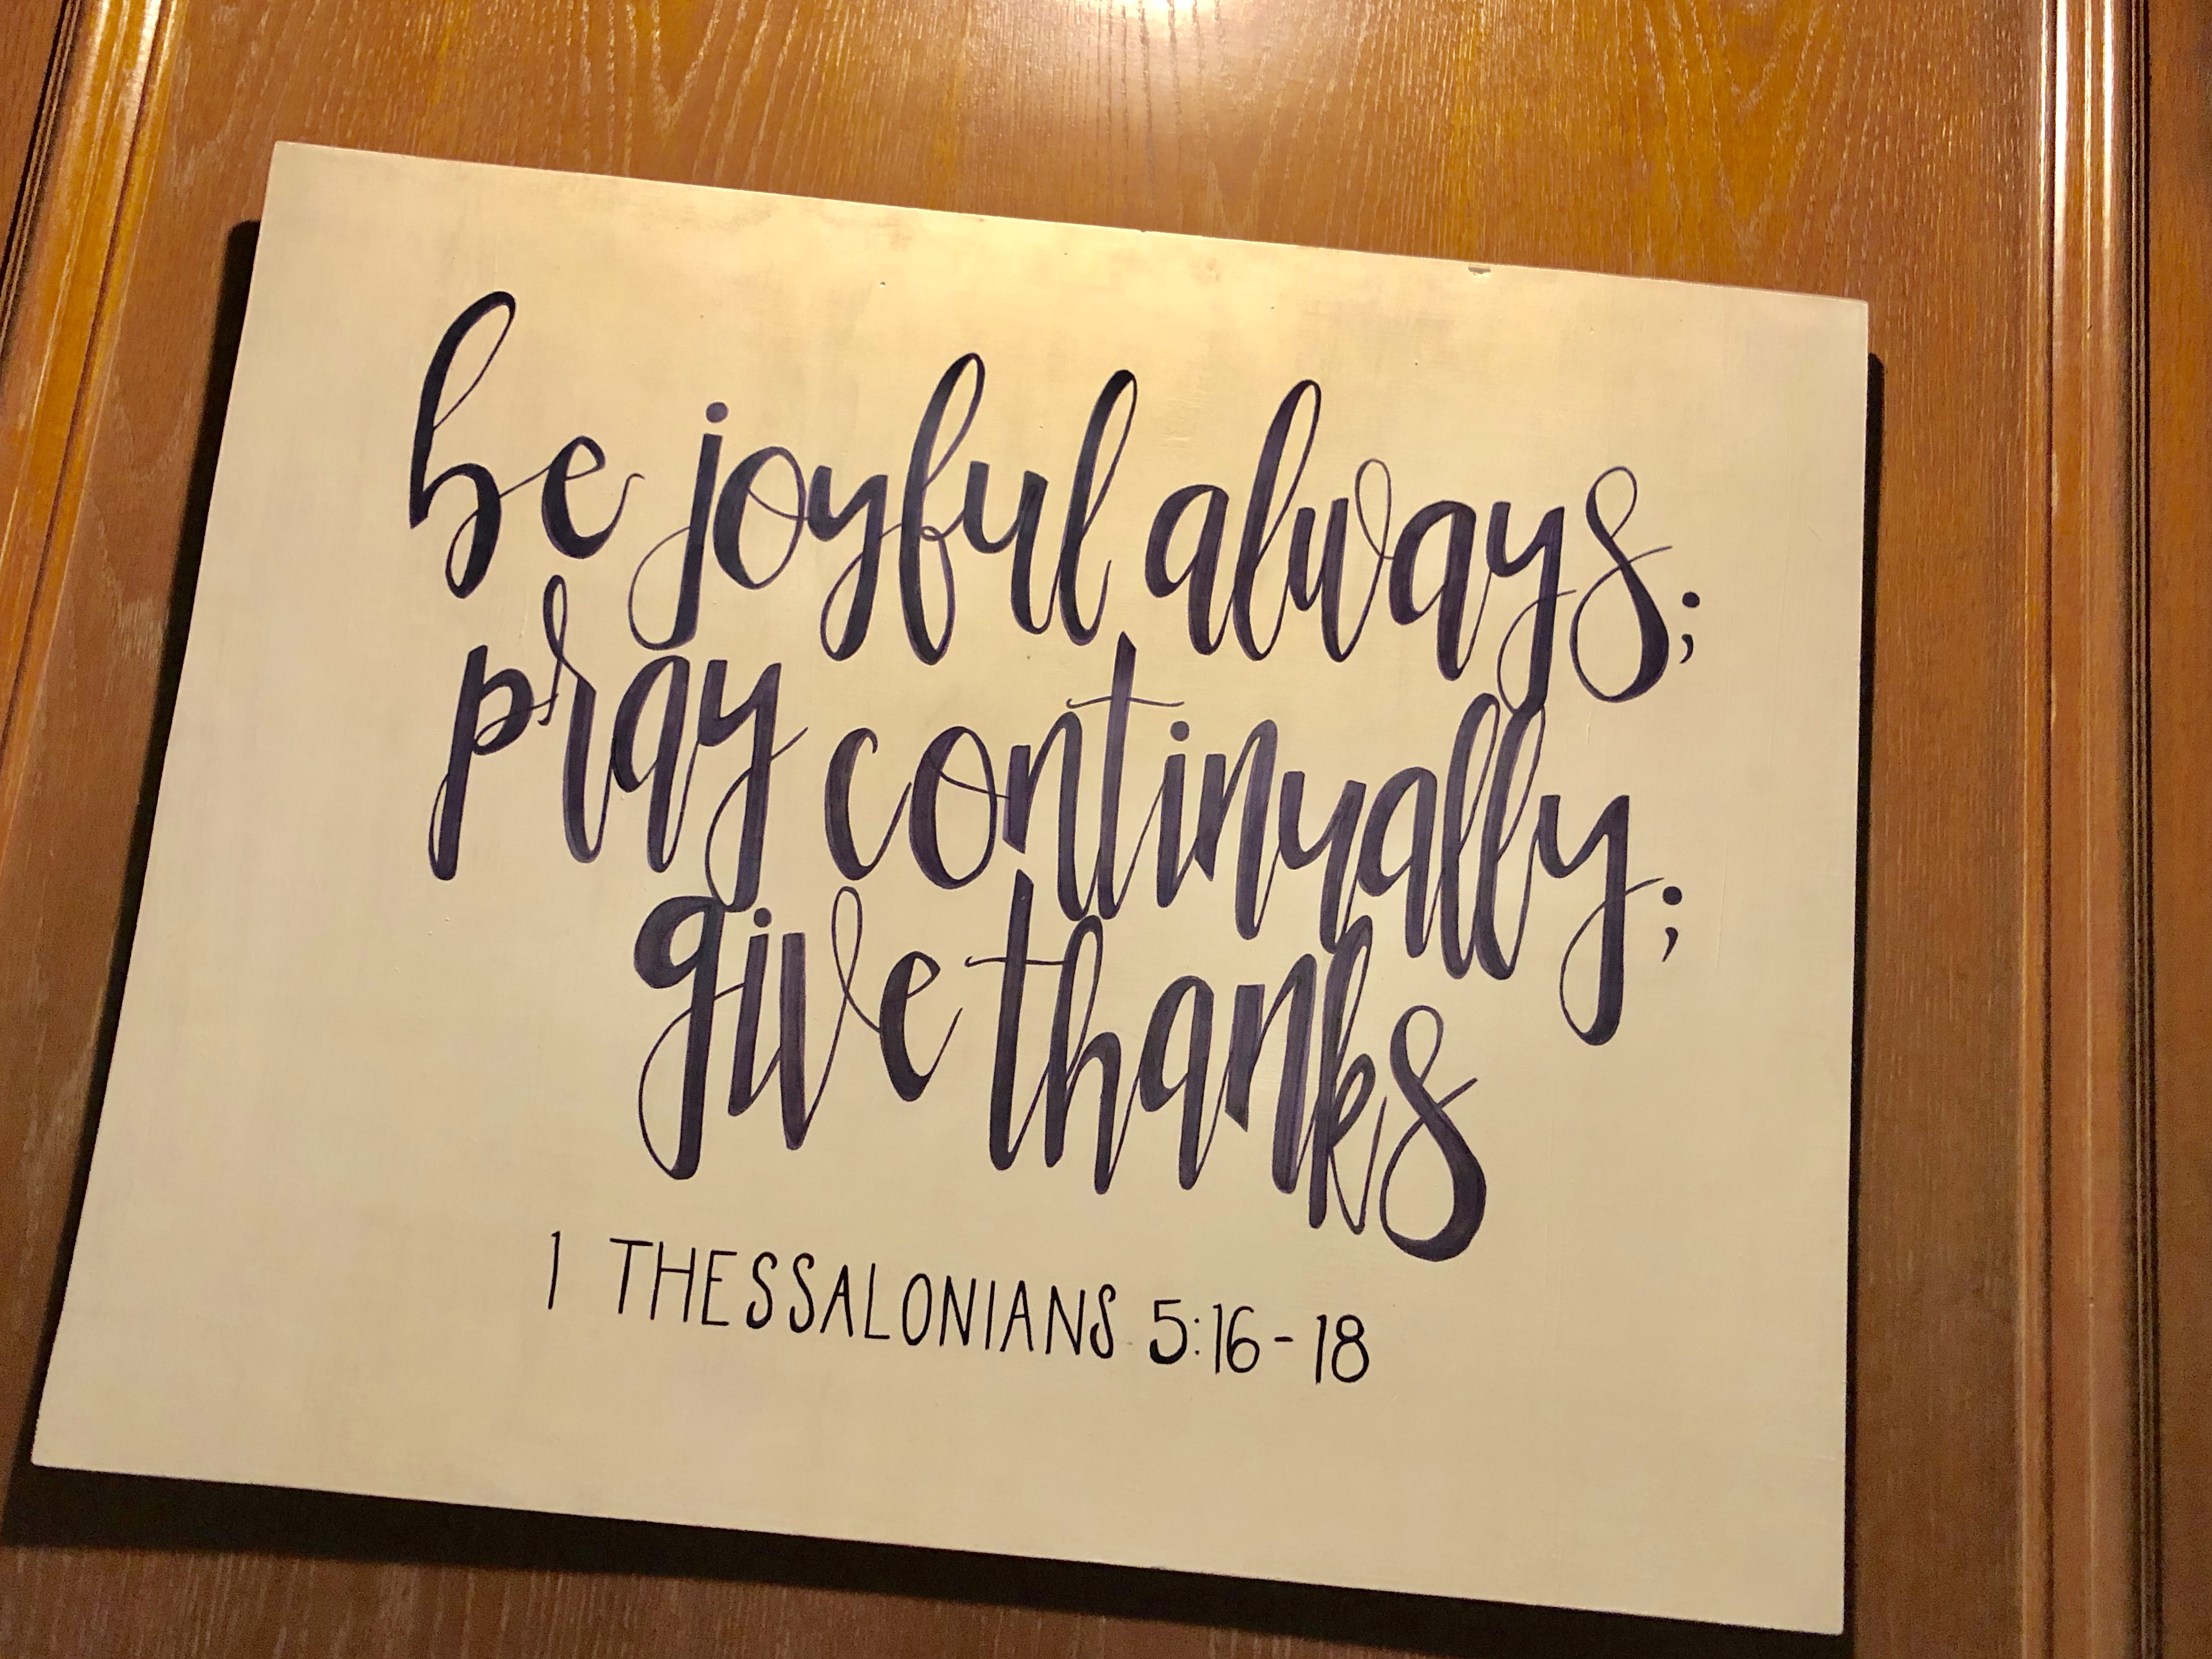 be joyful always;
pray continually;
give thanks
1 THESSALONIANS 5:16-18